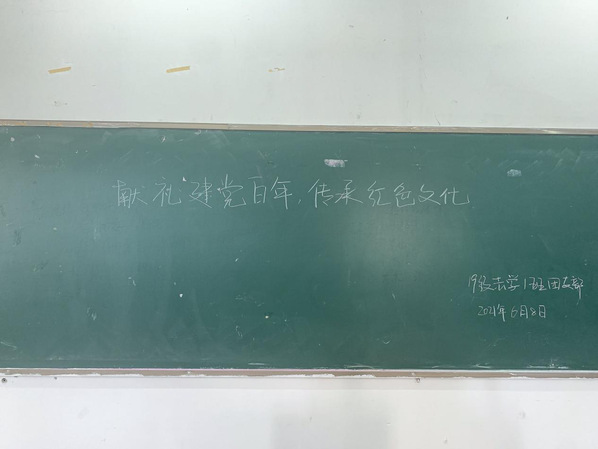 献礼建党百年,传承红色文化
19级法学1班团支部
2021年6月8日